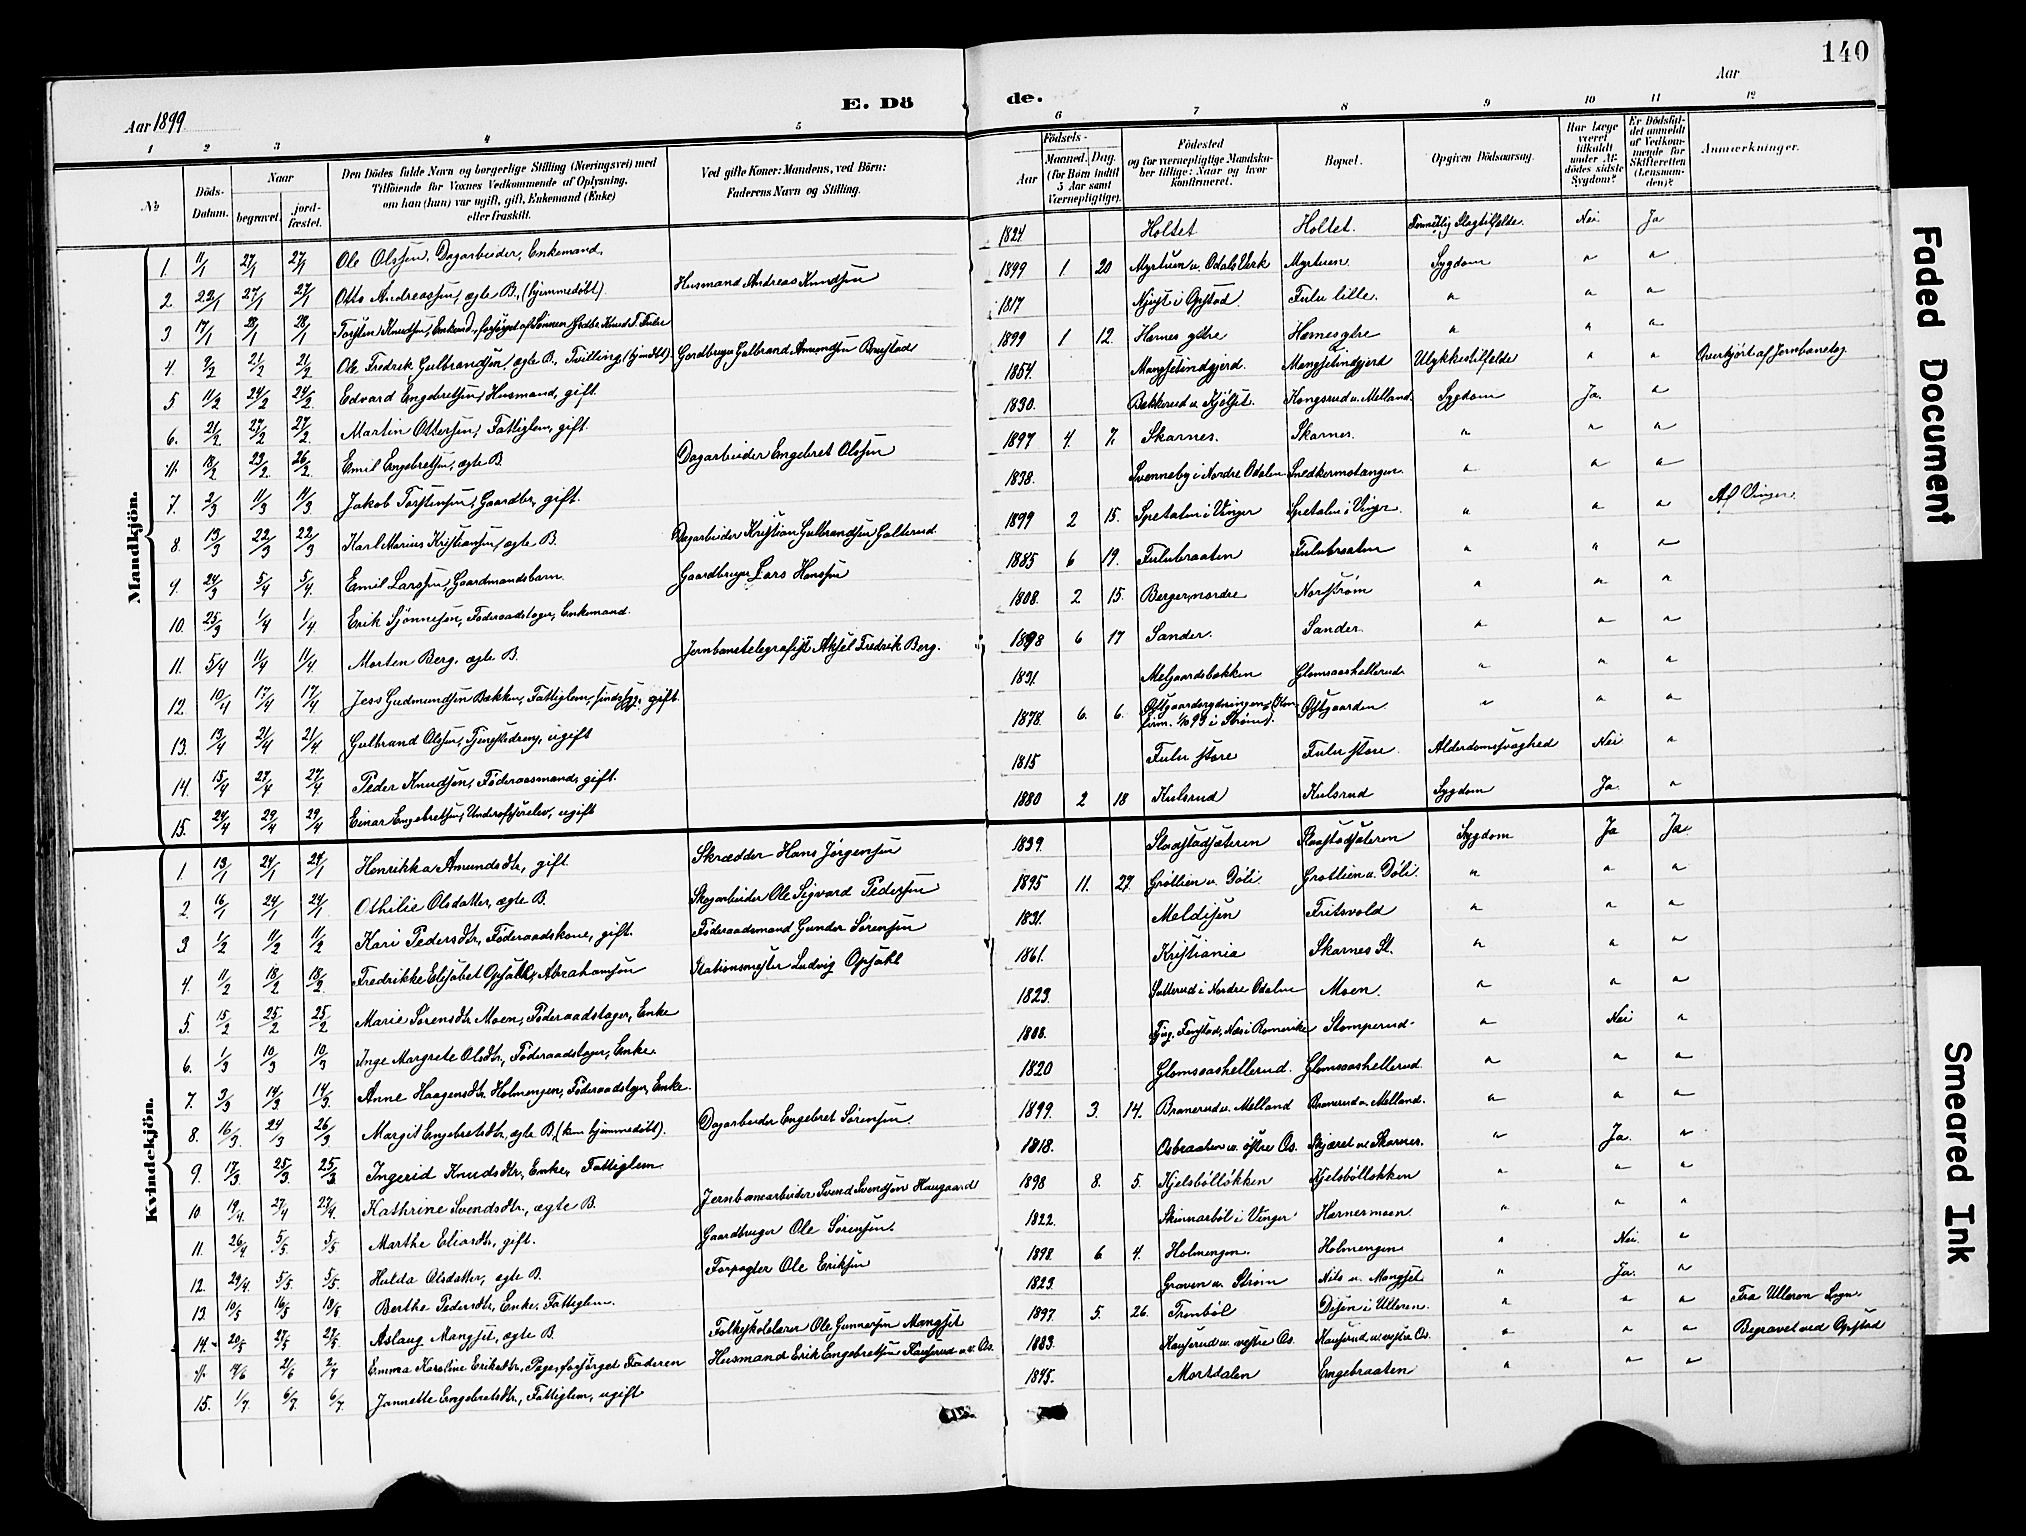 140
Aar 1899
E. Dö de.
Aar
1 2 3 4 5 6 7 8 9 10 11 12
No
Döds-Datum.
Naar
begravet
jord-fæstet.
Den Dödes fulde Navn og borgerlige Stilling (Næringsvei) med
Tilföiende for Voxnes Vedkommende af Oplysning,
om han (hun) var ugift, gift, Enkemand (Enke)
eller fraskilt.
Ved gifte Koner: Mandens, ved Börn:
Faderens Navn og Stilling.
Födsels-
Aar
Maaned. Dag.
(for Börn indtil
5 Aar samt
Værnepligtige).
Födested
og for værnepligtige Mandska-
ber tillige: Naar og hvor
konfirmeret.
Bopæl.
Opgiven Dödsaarsag.
Har Læge
været
tilkaldt
under Af-
dödes sidste
Sygdom?
Er Dödsfal-
det anmeldt
af Vedkom-
mende for
Skifteretten
(Lensman-
den)?
Anmærkninger.
Mandkjön.
1. 11/1 27/1 27/1 Ole Olssen, Dagarbeider, Enkemand. 1824 Holtet Holtet. Slagtilfælde. Nei Ja
2. 22/1 27/1 27/1 Otto Andreassen, ægte B. (hjemmedøbt). Husmand Andreas Knudsen 1899 1 20 Myrtuen u. Odals Verk Myrtuen. Sygdom " "
3 17/1 28/1 28/1 Torsten Knudsen, Enkemd., forsørget af Sønnen 1817 Opstad Fulu lille. " " "
4. 9/2 21/2 21/2 Ole Fredrik Gulbrandsen, ægte B. Tvilling (hjmdbt) Gordbruger Gulbrand Amundsen Brustad 1899 1 12. Hernes ytre Hernes ytre " " "
5 11/2 24/2 24/2. Edvard Engebretsen, Husmand, gift. 1854. Mangsetindgjerd. Mangsetindgjerd Ulykkestilfælde " " Overkjørt af Jernbanetog.
6. 21/2 27/2 27/2. Martin Ottersen, Fattiglem, gift. 1830. Bakkerud u. Kongsrud u. Melland. Sygdom Ja. "
18/2 23/2 26/2. Emil Engebretsen, ægte B. Dagarbeider Engebret Olssen 1897 4. 7. Skarnes. Skarnes. " " "
7. 2/3 11/3 11/3 Jakob Torstensen, Gaardbr. gift. 1838. Svenneby i Nordre Odalen Snedkermotangen. " " "
8. 13/3 22/3 22/3 Karl Marius Kristiansen, ægte B. Dagarbeider Kristian Gulbrandsen Galterud. 1899 2 15. Spetalen i Vinger Spetalen i Vinger. " " " Af Vinger.
24/3 5/4 5/4. Emil Larssen, Gaardmandsbarn. Gaardbruger Lars Hanssen 1885 6 19. Fulubraaten Fulubraaten " " "
10. 25/3 1/4 1/4. Erik Sjønnesen, Føderaadstager, Enkemand. 1808. 2 15. Berger, nordre Norstrøm " " "
11. 5/4 11/4 11/4 Morten Berg, ægte B. Jernbanetelegrafist Aksel Fredrik Berg. 1898 6 17 Sander. Sander. " " "
12. 10/4 17/4 17/4 Jess Gudmundsen Bakken, Fattiglem, sindssyg, gift. 1831. Melgaardsbakken Glomsaashellerud " " "
13. 13/4 21/4 21/4 Gulbrand Olssen, Tjenestedreng, ugift 1878. 6. 6. Østgaarden " " "
14. 15/4 27/4 27/4. Peder Knudsen, Føderaadsmand, gift. 1815 Fulu store Fulu store. Alderdomssvaghed Nei "
15. 24/4 29/4 29/4 Einar Engebretsen, Underofficerelev, ugift 1880 2 18 Kulsrud Kulsrud Sygdom Ja. "
Kvindekjön.
1 13/1 24/1 24/1 Henrikka Amundsdtr, gift. Skrædder Hans Jørgensen 1839. Slaastadsæteren Slaastadsæteren Sygdom Ja Ja
2. 16/1 24/1 24/1 Othilie Olsdatter, ægte B. Skogarbeider Ole Sigvard Pedersen 1895 11. 27. Grøtlien u. Døli. Grøtlien u. Døli. " " "
3 1/2 11/2 11/2 Kari Pedersdtr, Føderaadskone, gift. Føderaadsmand Gunder Sørensen 1831. Meldisen Fritsvold " " "
4. 11/2 18/2 18/2. Fredrikke Elisabet Opsahl, f. Abrahamsen Stationsmester Ludvig Opsahl 1861. Kristiania Skarnes St. " " "
5. 15/2 25/2 25/2 Marie Sørensdtr Moen, Føderaadstager, Enke 1823. Sætterud i Nordre Odalen Moen. " " "
6. 1/3 10/3 10/3 Inge Margrete Olsdtr., Føderaadstager, Enke. Fenstad, Næs i Romerike Stomperud. " Nei "
7. 3/3 14/3 14/3. Anne Haagensdtr. Holmengen, Føderaadstager, Enke. 1820 Glomsaashellerud. Glomsaashellerud. " " "
8. 16/3. 24/3 26/3 Margit Engebretsdtr, ægte B. (kun hjemmedøbt). Dagarbeider Engebret Sørensen. 1899. 3. 14. Branerud u. Melland Branerud u. Melland. " " "
9. 17/3. 25/3 25/3 Ingerid Knudsdtr., Enke, Fattiglem 1818. Osbraaten u. østre Os. Skjæret ved Skarnes. " Ja. "
10 19/4. 27/4 27/4. Kathrine Svendsdtr., ægte B. Jernbanearbeider Svend Svendsen Haugaard 1898 8. 5. Kjelsbølløkken Kjelsbølløkken " " "
11. 26/4 5/5 5/5 Marthe Eliasdtr, gift. Gaardbruger Ole Sørensen. 1822. Skinnarbøl i Vinger Hernesmoen. " " "
12. 29/4. 5/5. 5/5. Hulda Olsdatter, ægte B. Forpagter Ole Eriksen 1898. 6 4. Holmengen. Holmengen " Nei. "
13. 10/5 16/5 Berthe Pedersdtr., Enke, Fattiglem. 1823. Graven u. Strøm u. Mangset. " Ja. "
14. 20/5 27/5 27/5. Aslaug Mangset, ægte B. Folkeskolelærer Ole Gunnersen Mangset 1897. 5. 26. Trønbøl Disen i Ulleren. " " " Fra Ulleren Sogn.
Emma Karoline Eriksdtr, Pige, forsørget Faderen Husmand Erik Engebretsen Kauserud u. v. Os. 1883. Kauserud u. vestre Os. Kauserud u. vestre Os. " " " Begravet ved Opstad
15. 1/7. 6/7. 6/7. Jannette Engebretsdtr., Fattiglem, ugift 1845. Mortdalen Engebraaten " " "
Faded Document
Smeared Ink